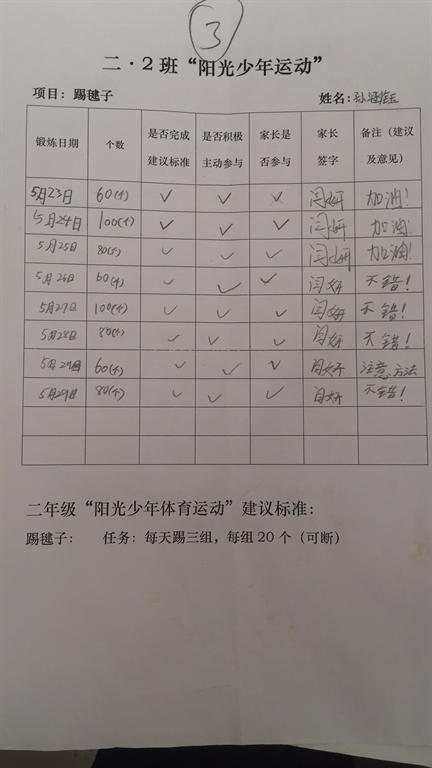 3
二·2班“阳光少年运动”
项目：踢毽子 姓名：孙
锻炼日期 个数 是否完成建议标准 是否积极主动参与 家长是否参与 家长签字 备注（建议及意见）
5月23日 60(个) ✓ ✓ ✓ 闫妍 加油！
5月24日 100(个) ✓ ✓ ✓ 闫妍 加油！
5月25日 80(个) ✓ ✓ ✓ 闫妍 加油！
5月26日 60(个) ✓ ✓ ✓ 闫妍 不错！
5月27日 100(个) ✓ ✓ ✓ 闫妍 不错！
5月28日 80(个) ✓ ✓ ✓ 闫妍 不错！
5月29日 60(个) ✓ ✓ ✓ 闫妍 注意方法
5月29日 80(个) ✓ ✓ ✓ 闫妍 不错！
二年级“阳光少年体育运动”建议标准：
踢毽子： 任务：每天踢三组，每组20个（可断）